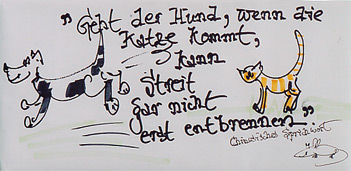 "Geht der Hund, wenn die
Katze kommt,
kann
Streit
gar nicht
erst entbrennen."
Chinesisches Sprichwort